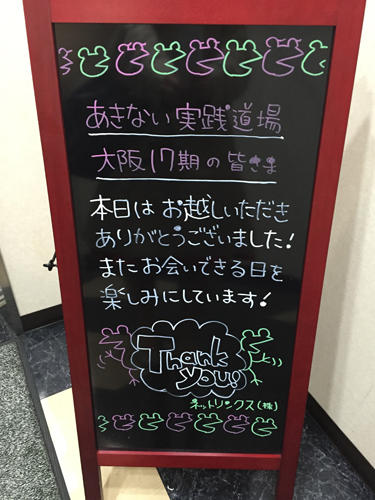 あきない実践道場
大阪17期の皆さま
本日はお越しいただき
ありがとうございました!
またお会いできる日を
楽しみにしています!
Thank
you!
ネットリンクス(株)